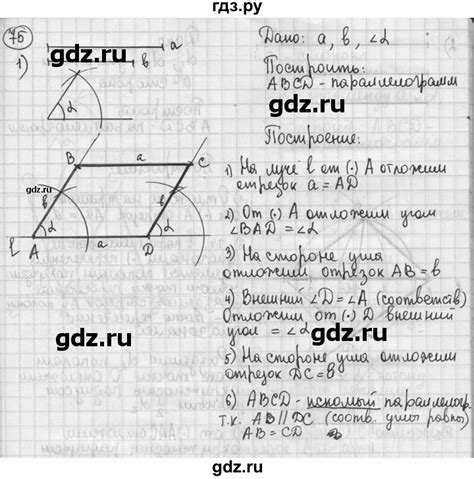 гдз.ру
75
1)
a
b
α
gdz.ru
Дано: a, b, ∠α
Построить:
ABCD - параллелограмм
gdz.ru
Построение:
1) На луче l от (·) A отложим
отрезок a = AD
2) От (·) A отложим угол
∠BAD = ∠α
3) На стороне угла
отложим отрезок AB = b
4) Внешний ∠D = ∠A (соответств)
Отложим от (·) D внешний
угол = ∠α
5) На стороне угла отложим
отрезок DC = b
6) ABCD - искомый параллелогр.
т.к. AB || DC (соотв. углы равны)
AB = CD
B
a
C
gdz.ru
b
b
α
α
l
A
a
D
gdz.ru
gdz.ru
gdz.ru
gdz.ru